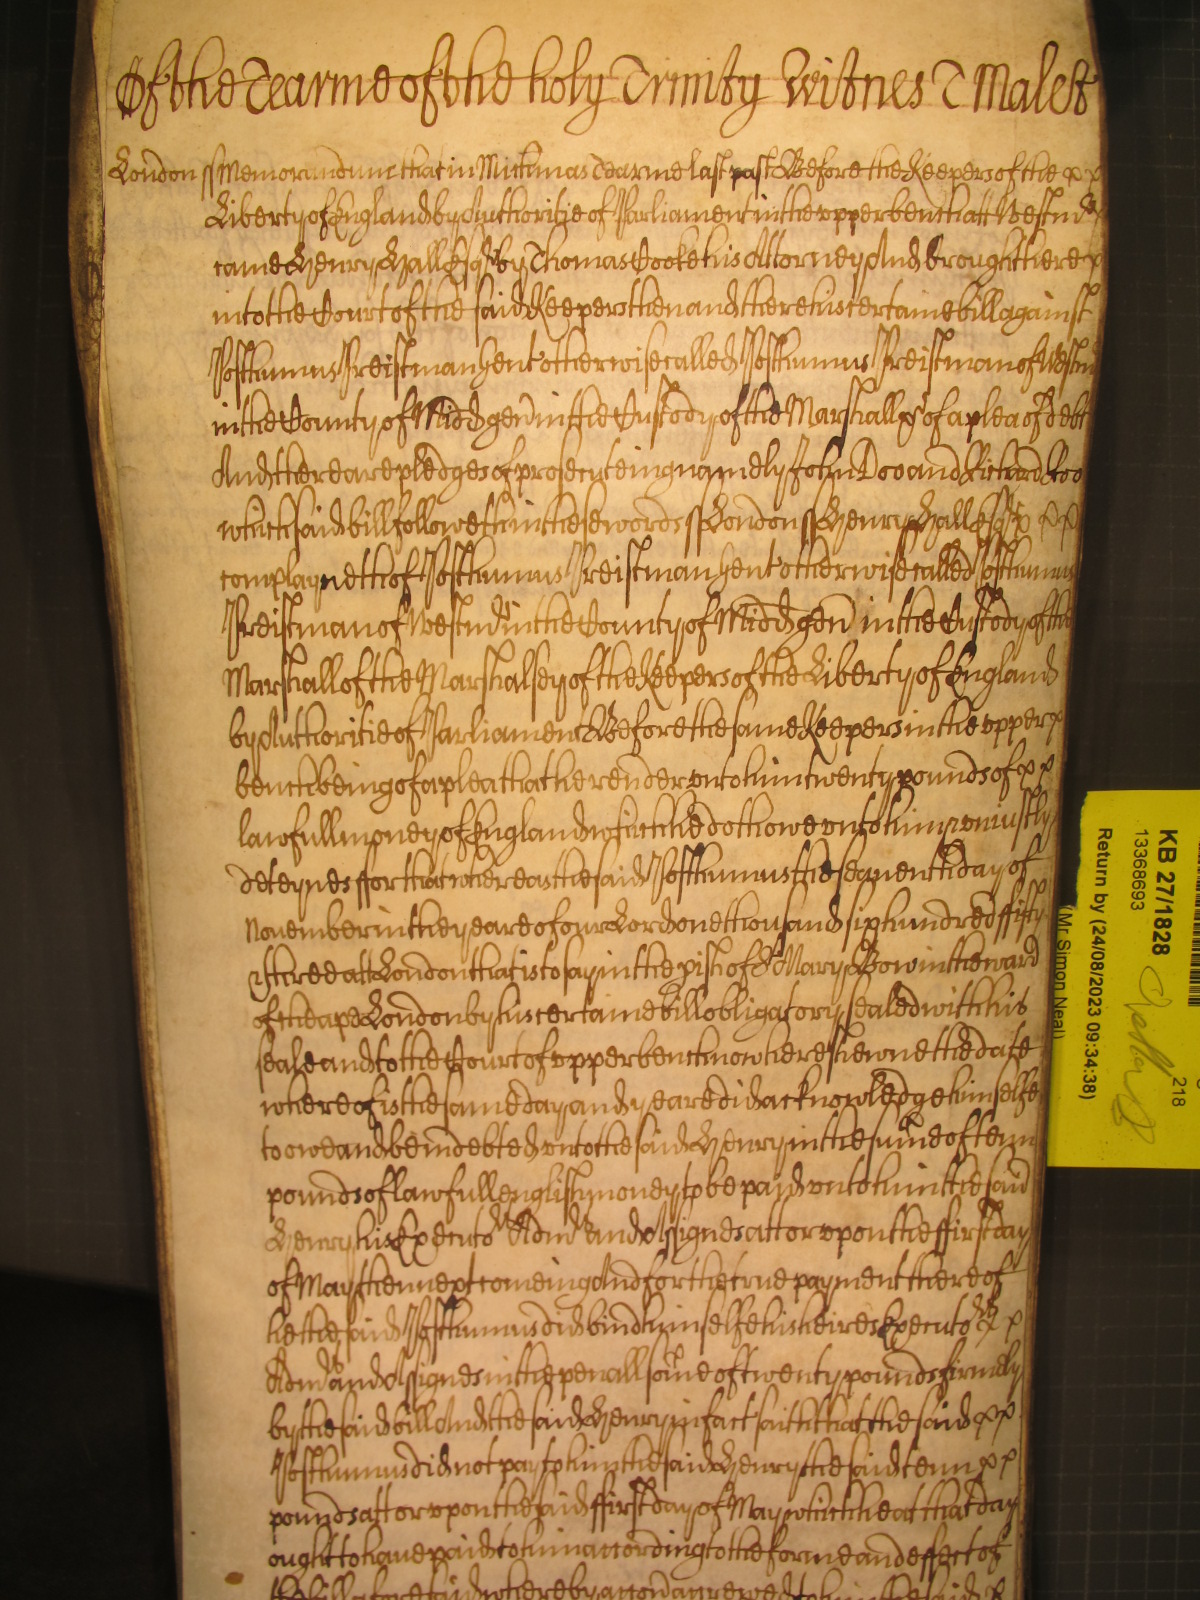 Of the Tearme of the holy Trinity Witnes T Malett
London ss Memorandum that in Michmas Tearme last past Before the Keepers of the x x
Liberty of England by Authoritie of Parliament in the vpper bench att Westmr x
came Henry Hall Esqr by Thomas Cooke his Attorney And brought here x
into the Court of the said Keepers then and there his certaine bill against
Posthumus Preistman gent otherwise called Posthumus Preistman of Westmr
in the County of Midd gen in the Custody of the Marshall &c of a plea of debt
And there are pledges of prosecuteing namely John Doo and Richard Roo
which said bill followeth in these words ss London ss Henry Hall Esqr x x x
complayneth of Posthumus Preistman gent otherwise called Posthumus
Preistman of Westmr in the County of Midd gen in the Custody of the
Marshall of the Marshalsey of the Keepers of the Liberty of England
by Authoritie of Parliament Before the same Keepers in the vpper x
bench being of a plea that he render vnto him twenty pounds of x x
lawfull money of England which he doth owe vnto him & vniustly
deteynes ffor that whereas the said Posthumus the seaventh day of
November in the yeare of our Lord one thousand six hundred ffifty
& three att London that is to say in the pish of St Mary Bow in the ward
of Cheape London by his certaine bill obligatory sealed with his
seale and to the Court of vpper bench now here shewne the date
whereof is the same day and yeare did acknowledge himselfe
to owe and be indebted vnto the said Henry in the sume of tenn
pounds of lawfull english money to be paid vnto him the said
Henry his Executors Admrs and Assignes att or vpon the ffirst day
of May then next comeing And for the true payment thereof
he the said Posthumus did bind himselfe his heires Executors x x
Admrs and Assignes in the penall sume of twenty pounds firmely
by the said bill And the said Henry in fact saith that the said x x
Posthumus did not pay to him the said Henry the said tenn x x
pounds att or vpon the said ffirst day of May which he at that day
ought to haue paid to him according to the forme and effect of
the bill aforesaid whereby accon accrewed to him the said x
KB 27/1828
13368693
Return by (24/08/2023 09:34:38)
(Mr Simon Neal)
218